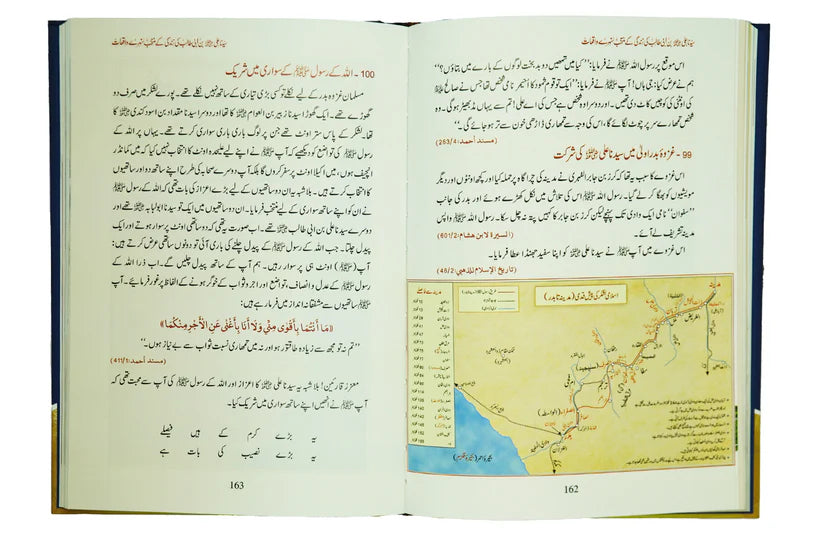 سیدنا علی رضی اللہ عنہ بن ابی طالب کی زندگی کے منتخب سنہرے واقعات
اس موقع پر رسول اللہ ﷺ نے فرمایا: ’’کیا میں تمھیں دو بد بخت لوگوں کے بارے میں بتاؤں؟‘‘
ہم نے عرض کیا: جی ہاں! آپ ﷺ نے فرمایا: ’’ایک تو قوم ثمود کا اُحیمر نامی شخص تھا جس نے صالح علیہ السلام
کی اونٹنی کی کونچیں کاٹ دی تھیں۔ اور دوسرا وہ شخص ہے جس کی اے علی! تم سے یہاں مڈبھیڑ ہوگی۔ وہ
شخص تمھارے سر پر چوٹ لگائے گا، اس کی وجہ سے تمھاری ڈاڑھی خون سے تر ہو جائے گی۔‘‘
(مسند أحمد: 263/4)
99 - غزوۂ بدر اولیٰ میں سیدنا علی رضی اللہ عنہ کی شرکت
اس غزوے کا سبب یہ تھا کہ کرز بن جابر الفہری نے مدینہ کی چراگاہ پر حملہ کیا اور کچھ اونٹوں اور دیگر
مویشیوں کو بھگا کر لے گیا۔ رسول اللہ ﷺ اس کی تلاش میں نکل کھڑے ہوئے اور بدر کی جانب
’’سفوان‘‘ نامی ایک وادی تک پہنچے لیکن کرز بن جابر کا کہیں پتہ نہ چل سکا۔ رسول اللہ ﷺ واپس
مدینہ تشریف لے آئے۔
(السیرة لابن هشام: 601/2)
اس غزوے میں آپ ﷺ نے سیدنا علی رضی اللہ عنہ کو اپنا سفید جھنڈا عطا فرمایا۔
(تاریخ الإسلام للذهبي: 46/2)
اسلامی لشکر کی پیش قدمی (مدینہ تا بدر)
بحیرۂ احمر (بحیرۂ قلزم)
162
سیدنا علی رضی اللہ عنہ بن ابی طالب کی زندگی کے منتخب سنہرے واقعات
100 - اللہ کے رسول ﷺ کے سواری میں شریک
مسلمان غزوۂ بدر کے لیے نکلے تو کسی بڑی تیاری کے ساتھ نہیں نکلے تھے۔ پورے لشکر میں صرف دو
گھوڑے تھے۔ ایک گھوڑا سیدنا زبیر بن العوام رضی اللہ عنہ کا تھا اور دوسرا سیدنا مقداد بن اسود کندی رضی اللہ عنہ کا
تھا۔ لشکر کے پاس ستر اونٹ تھے جن پر لوگ باری باری سواری کرتے تھے۔ یہاں پر اللہ کے
رسول ﷺ کی تواضع کو دیکھیے کہ آپ ﷺ نے اپنے لیے علیحدہ اونٹ کا انتخاب نہیں کیا کہ میں کمانڈر
انچیف ہوں، میں اکیلا اونٹ پر سفر کروں گا بلکہ آپ دوسرے صحابہ کی طرح اپنے ساتھ دو ساتھیوں
کا انتخاب کرتے ہیں۔ بلاشبہ یہ ان دو ساتھیوں کے لیے بڑے اعزاز کی بات تھی کہ اللہ کے رسول ﷺ
نے ان کو اپنے ساتھ سواری کے لیے منتخب فرمایا۔ ان دو ساتھیوں میں ایک تو سیدنا ابولبابہ رضی اللہ عنہ تھے اور
دوسرے سیدنا علی بن ابی طالب رضی اللہ عنہ تھے۔ اب صورت یہ تھی کہ دو ساتھی اونٹ پر سوار ہوتے اور ایک
پیدل چلتا۔ جب اللہ کے رسول ﷺ کے پیدل چلنے کی باری آئی تو دونوں ساتھی عرض کرتے ہیں:
آپ (ﷺ) اونٹ ہی پر سوار رہیں۔ ہم آپ کے ساتھ پیدل چلیں گے۔ اب ذرا اللہ کے
رسول ﷺ کے عدل و انصاف، تواضع اور اجر و ثواب کے خوگر ہونے کے الفاظ پر غور فرمائیے۔ آپ
ﷺ ساتھیوں سے مشفقانہ انداز میں فرما رہے ہیں:
«مَا أَنْتُمَا بِأَقْوَى مِنِّي وَلَا أَنَا بِأَغْنَى عَنِ الْأَجْرِ مِنْكُمَا»
’’تم نہ تو مجھ سے زیادہ طاقتور ہو اور نہ میں تمھاری نسبت ثواب سے بے نیاز ہوں۔‘‘
(مسند أحمد: 411/1)
معزز قارئین! بلاشبہ یہ سیدنا علی رضی اللہ عنہ کا اعزاز اور اللہ کے رسول ﷺ کی آپ سے محبت تھی کہ
آپ ﷺ نے انھیں اپنے ساتھ سواری میں شریک کیا۔
یہ بڑے کرم کے ہیں فیصلے
یہ بڑے نصیب کی بات ہے
163